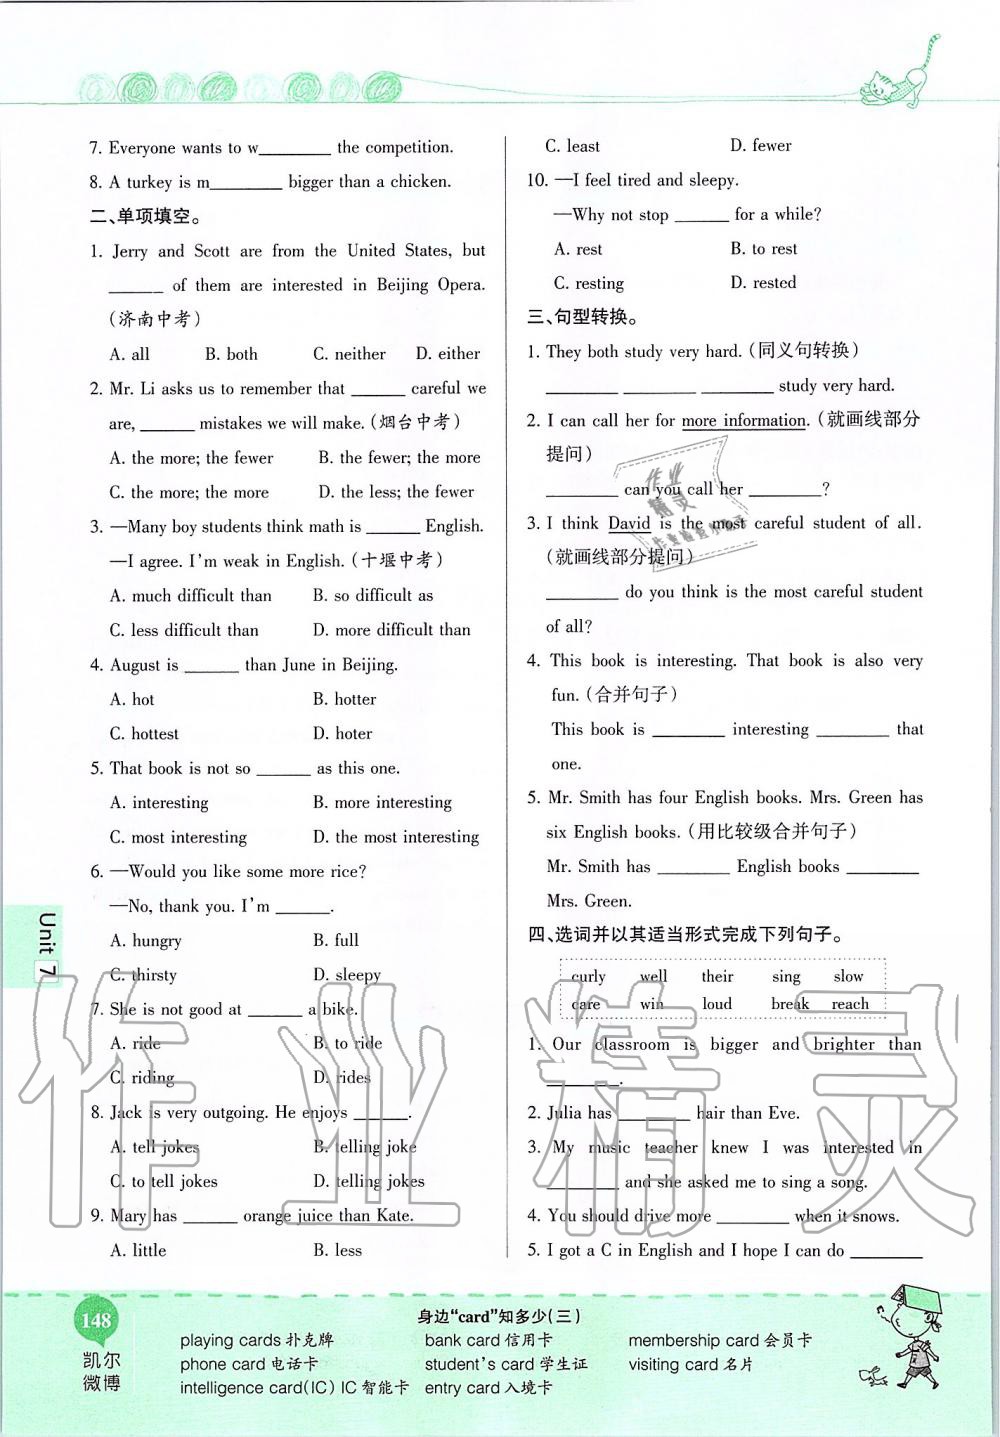 7. Everyone wants to w________ the competition.
8. A turkey is m________ bigger than a chicken.
二、单项填空。
1. Jerry and Scott are from the United States, but
______ of them are interested in Beijing Opera.
(济南中考)
A. all B. both C. neither D. either
2. Mr. Li asks us to remember that ______ careful we
are, ______ mistakes we will make. (烟台中考)
A. the more; the fewer B. the fewer; the more
C. the more; the more D. the less; the fewer
3. —Many boy students think math is ______ English.
—I agree. I'm weak in English. (十堰中考)
A. much difficult than B. so difficult as
C. less difficult than D. more difficult than
4. August is ______ than June in Beijing.
A. hot B. hotter
C. hottest D. hoter
5. That book is not so ______ as this one.
A. interesting B. more interesting
C. most interesting D. the most interesting
6. —Would you like some more rice?
—No, thank you. I'm ______.
A. hungry B. full
C. thirsty D. sleepy
7. She is not good at ______ a bike.
A. ride B. to ride
C. riding D. rides
8. Jack is very outgoing. He enjoys ______.
A. tell jokes B. telling joke
C. to tell jokes D. telling jokes
9. Mary has ______ orange juice than Kate.
A. little B. less
C. least D. fewer
10. —I feel tired and sleepy.
—Why not stop ______ for a while?
A. rest B. to rest
C. resting D. rested
三、句型转换。
1. They both study very hard. (同义句转换)
________ ________ ________ study very hard.
2. I can call her for more information. (就画线部分
提问)
________ can you call her ________?
3. I think David is the most careful student of all.
(就画线部分提问)
________ do you think is the most careful student
of all?
4. This book is interesting. That book is also very
fun. (合并句子)
This book is ________ interesting ________ that
one.
5. Mr. Smith has four English books. Mrs. Green has
six English books. (用比较级合并句子)
Mr. Smith has ________ English books ________
Mrs. Green.
四、选词并以其适当形式完成下列句子。
curly well their sing slow
care win loud break reach
1. Our classroom is bigger and brighter than
________.
2. Julia has ________ hair than Eve.
3. My music teacher knew I was interested in
________ and she asked me to sing a song.
4. You should drive more ________ when it snows.
5. I got a C in English and I hope I can do ________
Unit 7
作业精灵
作业
精灵
148
凯尔
微博
身边“card”知多少(三)
playing cards 扑克牌 bank card 信用卡 membership card 会员卡
phone card 电话卡 student's card 学生证 visiting card 名片
intelligence card(IC) IC 智能卡 entry card 入境卡